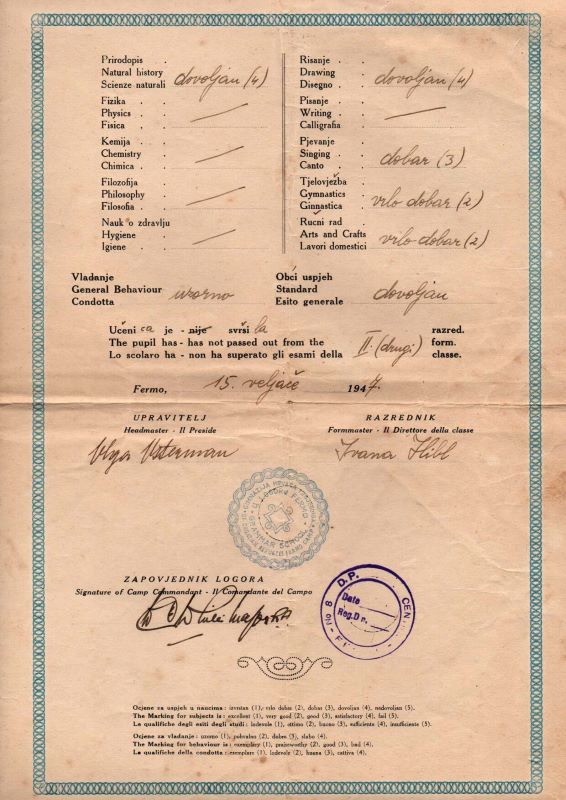 Prirodopis . .
Natural history
Scienze naturali dovoljan (4)
Fizika . .
Physics . .
Fisica . .
Kemija . .
Chemistry .
Chimica . .
Filozofija .
Philosophy .
Filosofia . .
Nauk o zdravlju
Hygiene . .
Igiene . .
Risanje . .
Drawing . .
Disegno . . dovoljan (4)
Pisanje . .
Writing . .
Calligrafia .
Pjevanje .
Singing . .
Canto . . dobar (3)
Tjelovježba
Gymnastics .
Ginnastica . vrlo dobar (2)
Ručni rad
Arts and Crafts
Lavori domestici vrlo dobar (2)
Vladanje
General Behaviour
Condotta uzorno
Obći uspjeh
Standard
Esito generale dovoljan
Učeni ca je - nije svrši la razred.
The pupil has - has not passed out from the II (drugi) form.
Lo scolaro ha - non ha superato gli esami della classe.
Fermo, 15. veljače 1947.
UPRAVITELJ
Headmaster - Il Preside
RAZREDNIK
Formmaster - Il Direttore della classe
Olga
Ivana
GRAMMAR SCHOOL
ZAPOVJEDNIK LOGORA
Signature of Camp Commandant - Il Comandante del Campo
D.P. CEN
Date
Reg. D r.
No 8
Ocjene za uspjeh u naucima: izvrstan (1), vrlo dobar (2), dobar (3), dovoljan (4), nedovoljan (5).
The Marking for subjects is: excellent (1), very good (2), good (3), satisfactory (4), fail (5).
Le qualifiche degli esiti degli studi: lodevole (1), ottimo (2), buono (3), sufficiente (4), insufficiente (5).
Ocjene za vladanje: uzorno (1), pohvalno (2), dobro (3), slabo (4).
The Marking for behaviour is: exemplary (1), praiseworthy (2), good (3), bad (4).
Le qualifiche della condotta: esemplare (1), lodevole (2), buona (3), cattiva (4).